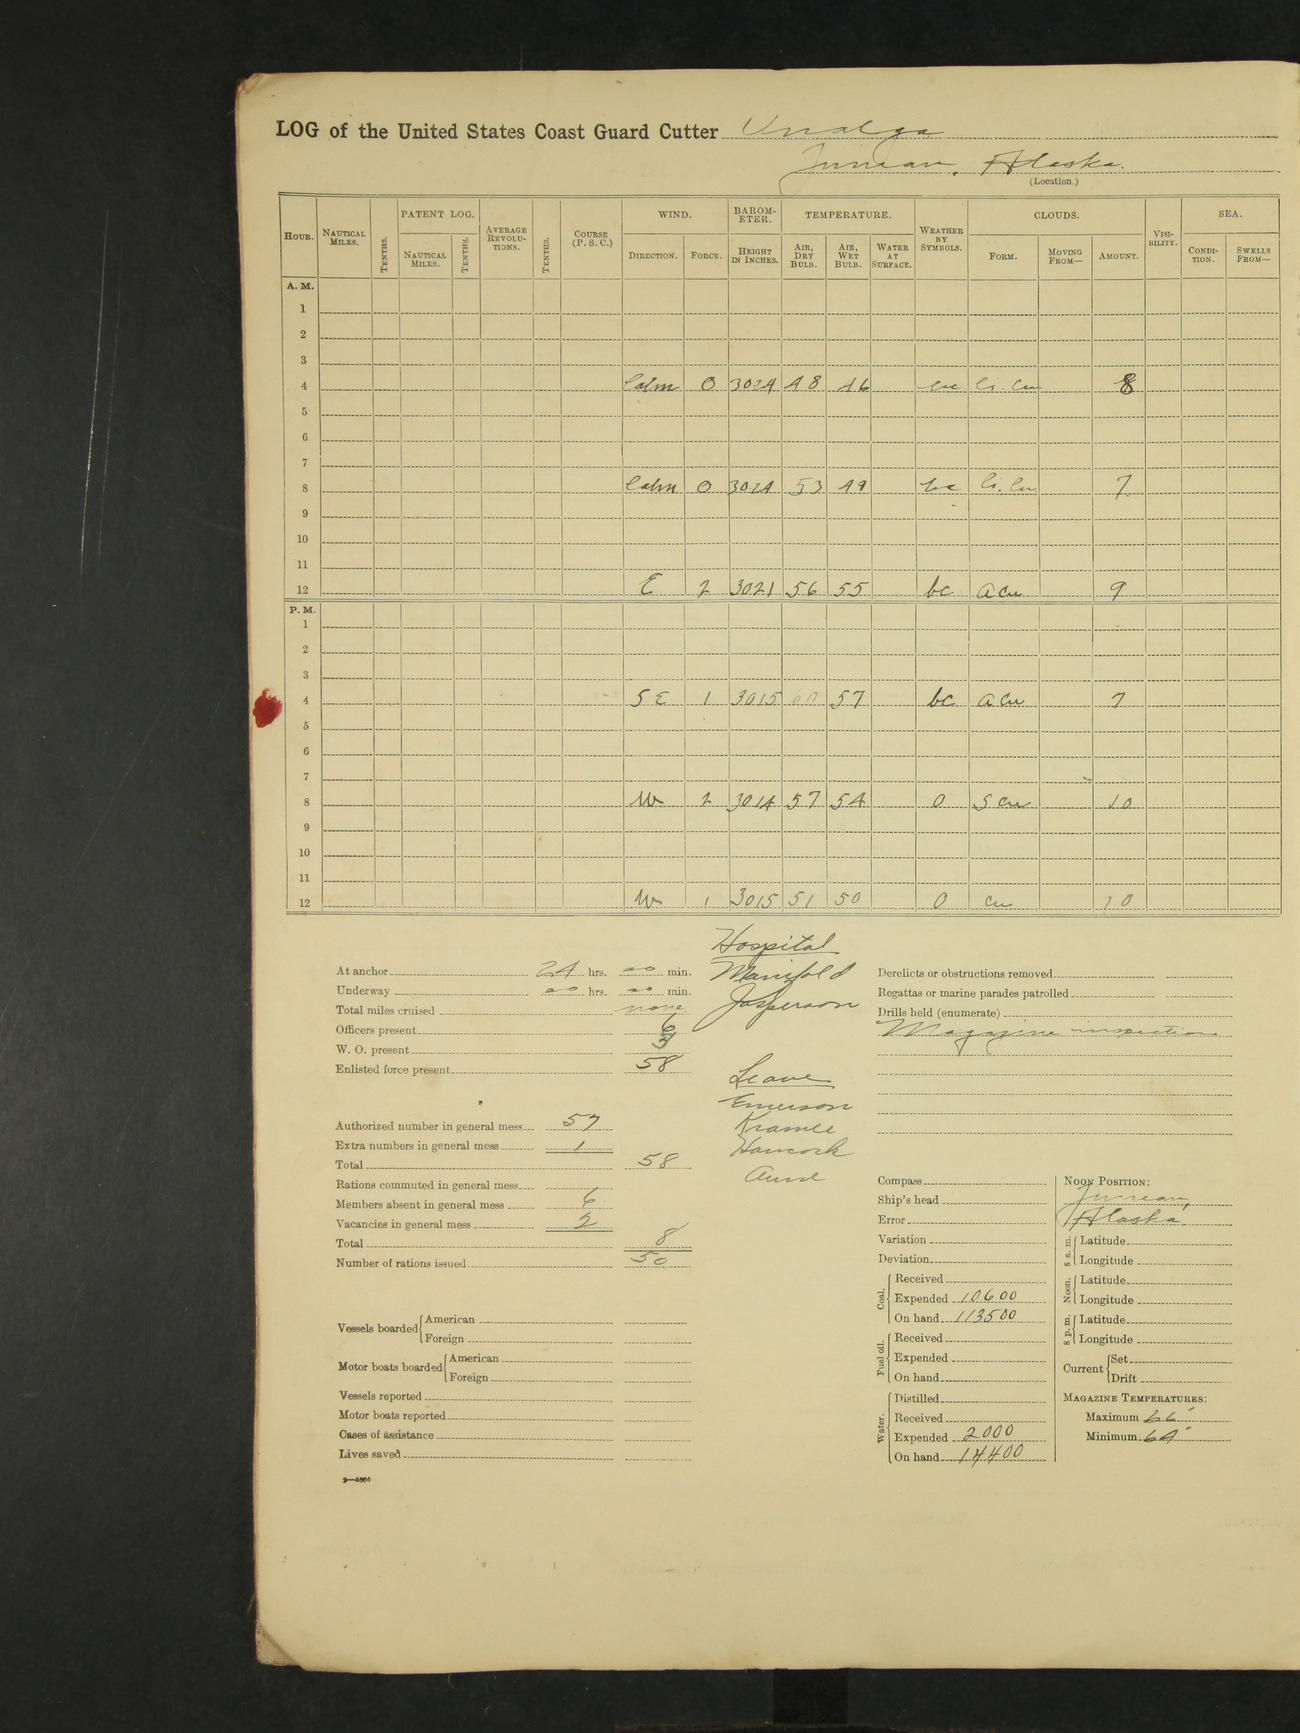 LOG of the United States Coast Guard Cutter Unalga
Juneau, Alaska.
(Location.)
HOUR. NAUTICAL MILES. TENTHS. PATENT LOG. NAUTICAL MILES. TENTHS. AVERAGE REVOLU-TIONS. TENTHS. COURSE (P. S. C.) WIND. DIRECTION. FORCE. BAROM-ETER. HEIGHT IN INCHES. TEMPERATURE. AIR, DRY BULB. AIR, WET BULB. WATER AT SURFACE. WEATHER BY SYMBOLS. CLOUDS. FORM. MOVING FROM— AMOUNT. VISI-BILITY. SEA. CONDI-TION. SWELLS FROM—
A. M.
1
2
3
4 Calm 0 3024 48 46 Ci. Cu 8
5
6
7
8 Calm 0 3024 53 49 bc Ci. Cu 7
9
10
11
12 E 2 3021 56 55 bc A Cu 9
P. M.
1
2
3
4 SE 1 3015 60 57 bc A Cu 7
5
6
7
8 W 2 3014 57 54 0 S Cu 10
9
10
11
12 W 1 3015 51 50 0 Cu 10
At anchor 24 hrs. 00 min.
Underway 00 hrs. 00 min.
Total miles cruised none
Officers present 6
W. O. present 3
Enlisted force present 58
Authorized number in general mess 57
Extra numbers in general mess 1
Total 58
Rations commuted in general mess
Members absent in general mess 6
Vacancies in general mess 2
Total 8
Number of rations issued 50
Vessels boarded American
Foreign
Motor boats boarded American
Foreign
Vessels reported
Motor boats reported
Cases of assistance
Lives saved
Hospital
Manifold
Jasperson
Leave
Emerson
Hancock
Derelicts or obstructions removed
Regattas or marine parades patrolled
Drills held (enumerate)
Magazine inspection
Compass
Ship's head
Error
Variation
Deviation
Coal. Received
Expended 10600
On hand 113500
Fuel oil. Received
Expended
On hand
Water. Distilled
Received
Expended 2000
On hand 14400
NOON POSITION:
Juneau,
Alaska
8 a. m. Latitude
Longitude
Noon. Latitude
Longitude
8 p. m. Latitude
Longitude
Current Set
Drift
MAGAZINE TEMPERATURES:
Maximum 66°
Minimum 64°